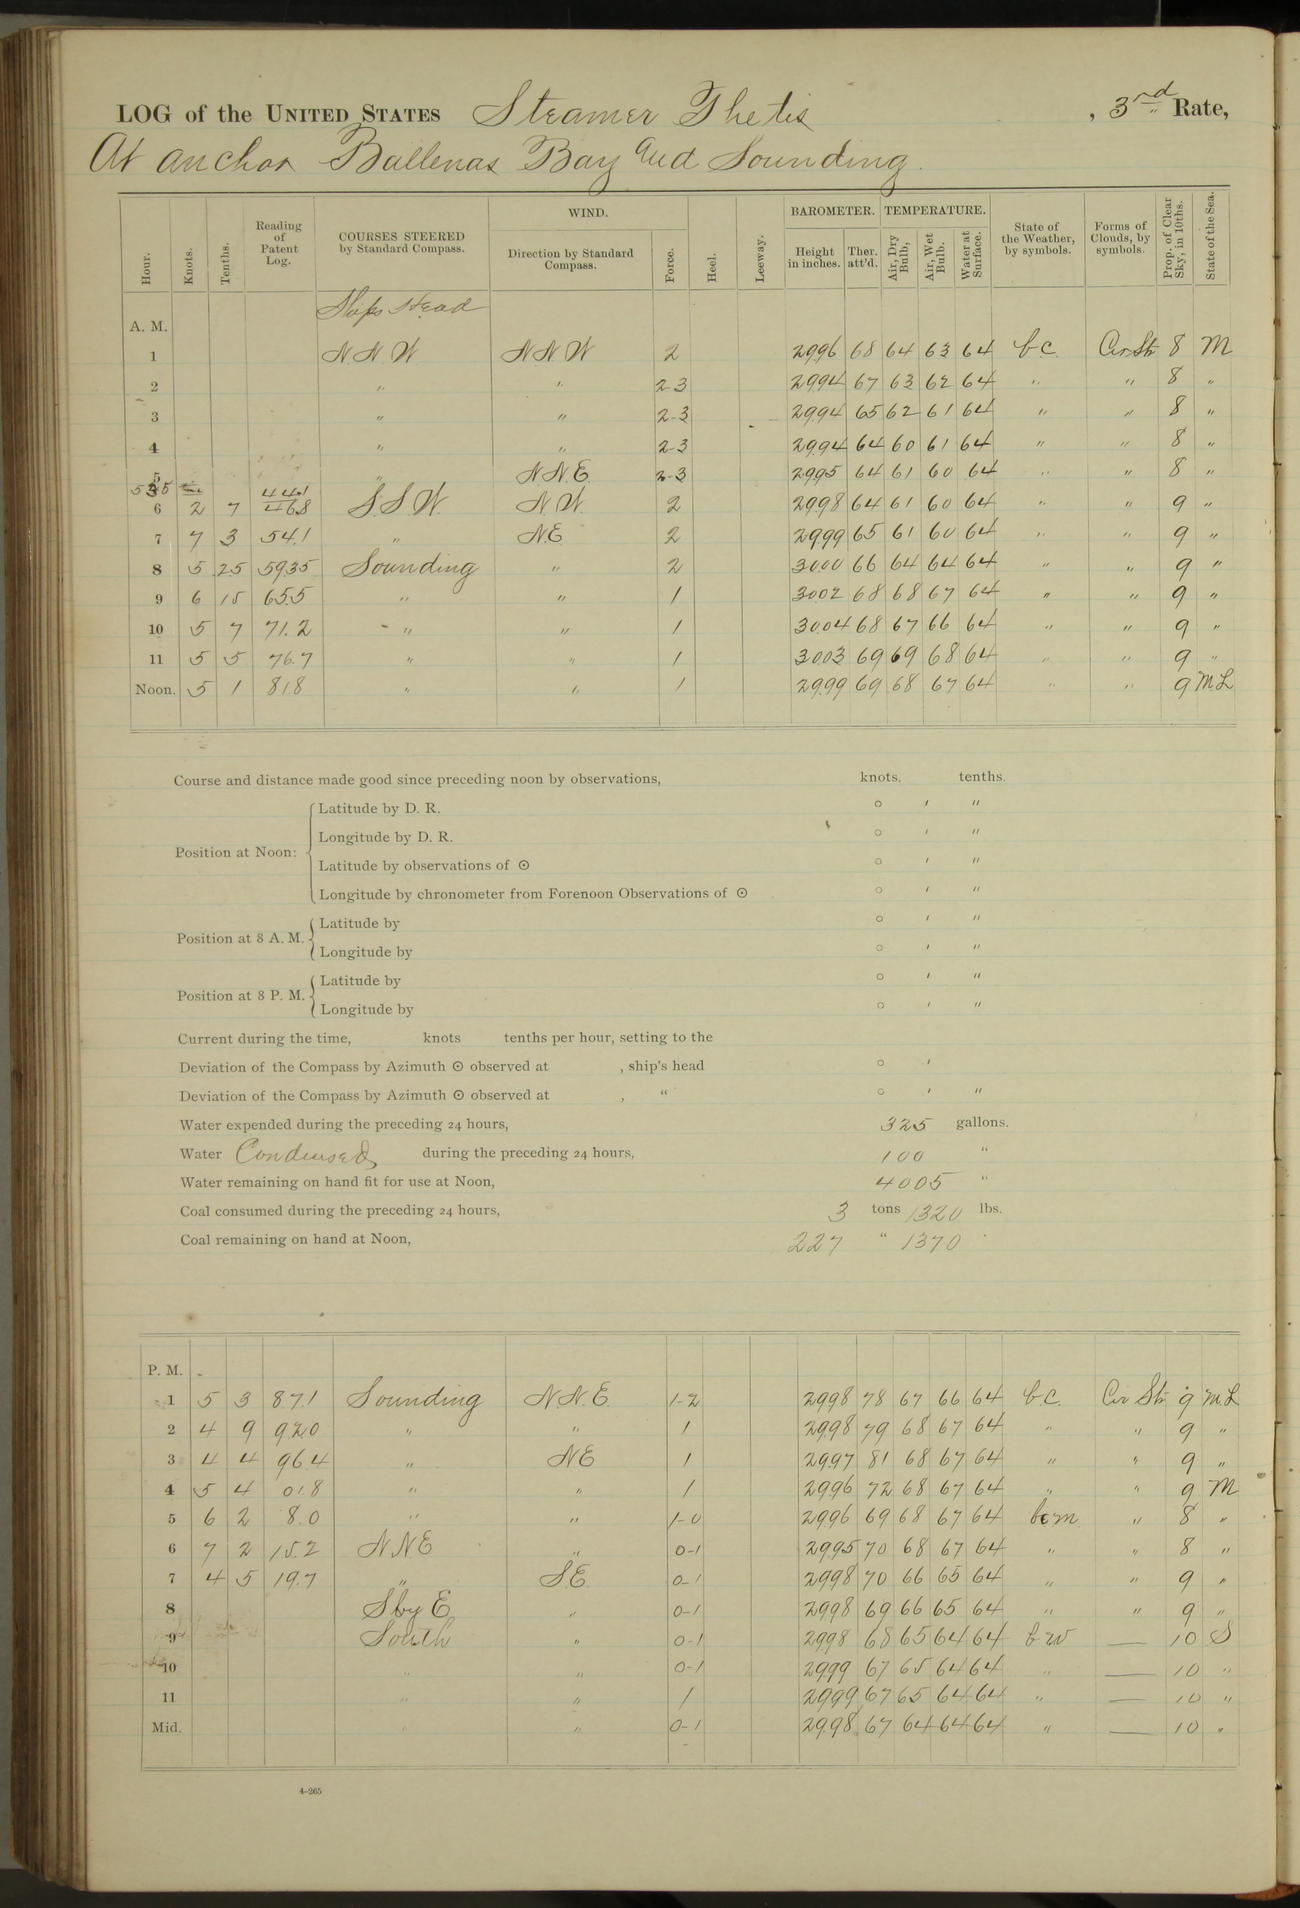 LOG of the UNITED STATES Steamer Thetis , 3rd Rate,
At anchor Ballenas Bay and Sounding.
Hour. Knots. Tenths. Reading of Patent Log. COURSES STEERED by Standard Compass. WIND. Direction by Standard Compass. Force. Heel. Leeway. BAROMETER. Height in inches. Ther. att'd. TEMPERATURE. Air, Dry Bulb, Air, Wet Bulb. Water at Surface. State of the Weather, by symbols. Forms of Clouds, by symbols. Prop. of Clear Sky, in 10ths. State of the Sea.
Ships Head
A. M.
1 N N W N N W 2 2996 68 64 63 64 b.c. Cir.Str 8 M
2 " " 2-3 2994 67 63 62 64 " " 8 "
3 " " 2-3 2994 65 62 61 64 " " 8 "
4 " " 2-3 2994 64 60 61 64 " " 8 "
5 " N.N.E. 2-3 2995 64 61 60 64 " " 8 "
535 44.1
6 2 7 46.8 S.S.W. N.W. 2 2998 64 61 60 64 " " 9 "
7 7 3 54.1 " N.E. 2 2999 65 61 60 64 " " 9 "
8 5 25 5935 Sounding " 2 3000 66 64 64 64 " " 9 "
9 6 15 65.5 " " 1 3002 68 68 67 64 " " 9 "
10 5 7 71.2 " " 1 3004 68 67 66 64 " " 9 "
11 5 5 76.7 " " 1 3003 69 69 68 64 " " 9 "
Noon. 5 1 81.8 " " 1 2999 69 68 67 64 " " 9 M.L
Course and distance made good since preceding noon by observations, knots. tenths.
Position at Noon: Latitude by D. R. ° ′ ″
Longitude by D. R. ° ′ ″
Latitude by observations of ⊙ ° ′ ″
Longitude by chronometer from Forenoon Observations of ⊙ ° ′ ″
Position at 8 A. M. Latitude by ° ′ ″
Longitude by ° ′ ″
Position at 8 P. M. Latitude by ° ′ ″
Longitude by ° ′ ″
Current during the time, knots tenths per hour, setting to the
Deviation of the Compass by Azimuth ⊙ observed at , ship's head ° ′
Deviation of the Compass by Azimuth ⊙ observed at , " ° ′ ″
Water expended during the preceding 24 hours, 325 gallons.
Water Condensed, during the preceding 24 hours, 100 "
Water remaining on hand fit for use at Noon, 4005 "
Coal consumed during the preceding 24 hours, 3 tons 1320 lbs.
Coal remaining on hand at Noon, 227 " 1370 "
P. M.
1 5 3 87.1 Sounding N.N.E. 1-2 2998 78 67 66 64 b.c. Cir Str 9 M.L
2 4 9 92.0 " " 1 2998 79 68 67 64 " " 9 "
3 4 4 96.4 " NE 1 2997 81 68 67 64 " " 9 "
4 5 4 01.8 " " 1 2996 72 68 67 64 " " 9 M
5 6 2 8.0 " " 1-0 2996 69 68 67 64 bcm " 8 "
6 7 2 15.2 NNE " 0-1 2995 70 68 67 64 " " 8 "
7 4 5 19.7 " S.E. 0-1 2998 70 66 65 64 " " 9 "
8 S by E " 0-1 2998 69 66 65 64 " " 9 "
9 South " 0-1 2998 68 65 64 64 b w — 10 S
10 " " 0-1 2999 67 65 64 64 " — 10 "
11 " " 1 2999 67 65 64 64 " — 10 "
Mid. " " 0-1 2998 67 64 64 64 " — 10 "
4-265